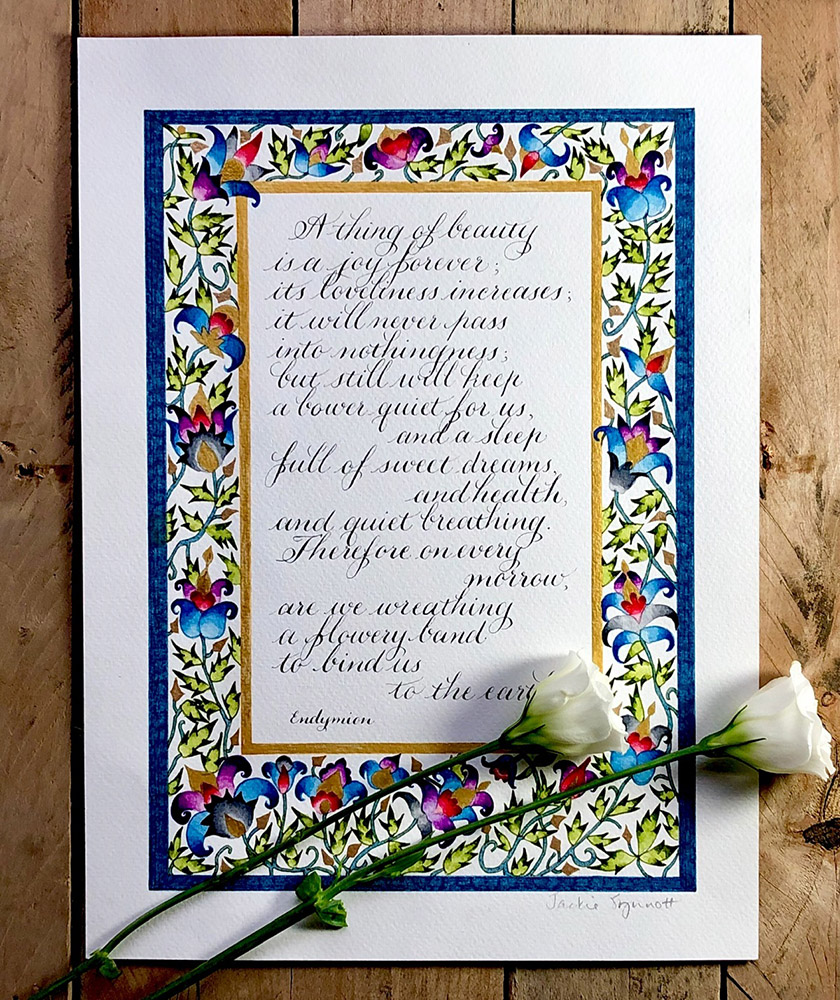 A thing of beauty
is a joy forever;
its loveliness increases;
it will never pass
into nothingness;
but still will keep
a bower quiet for us,
and a sleep
full of sweet dreams,
and health,
and quiet breathing.
Therefore on every
morrow,
are we wreathing
a flowery band
to bind us
to the eart
Endymion
Jackie